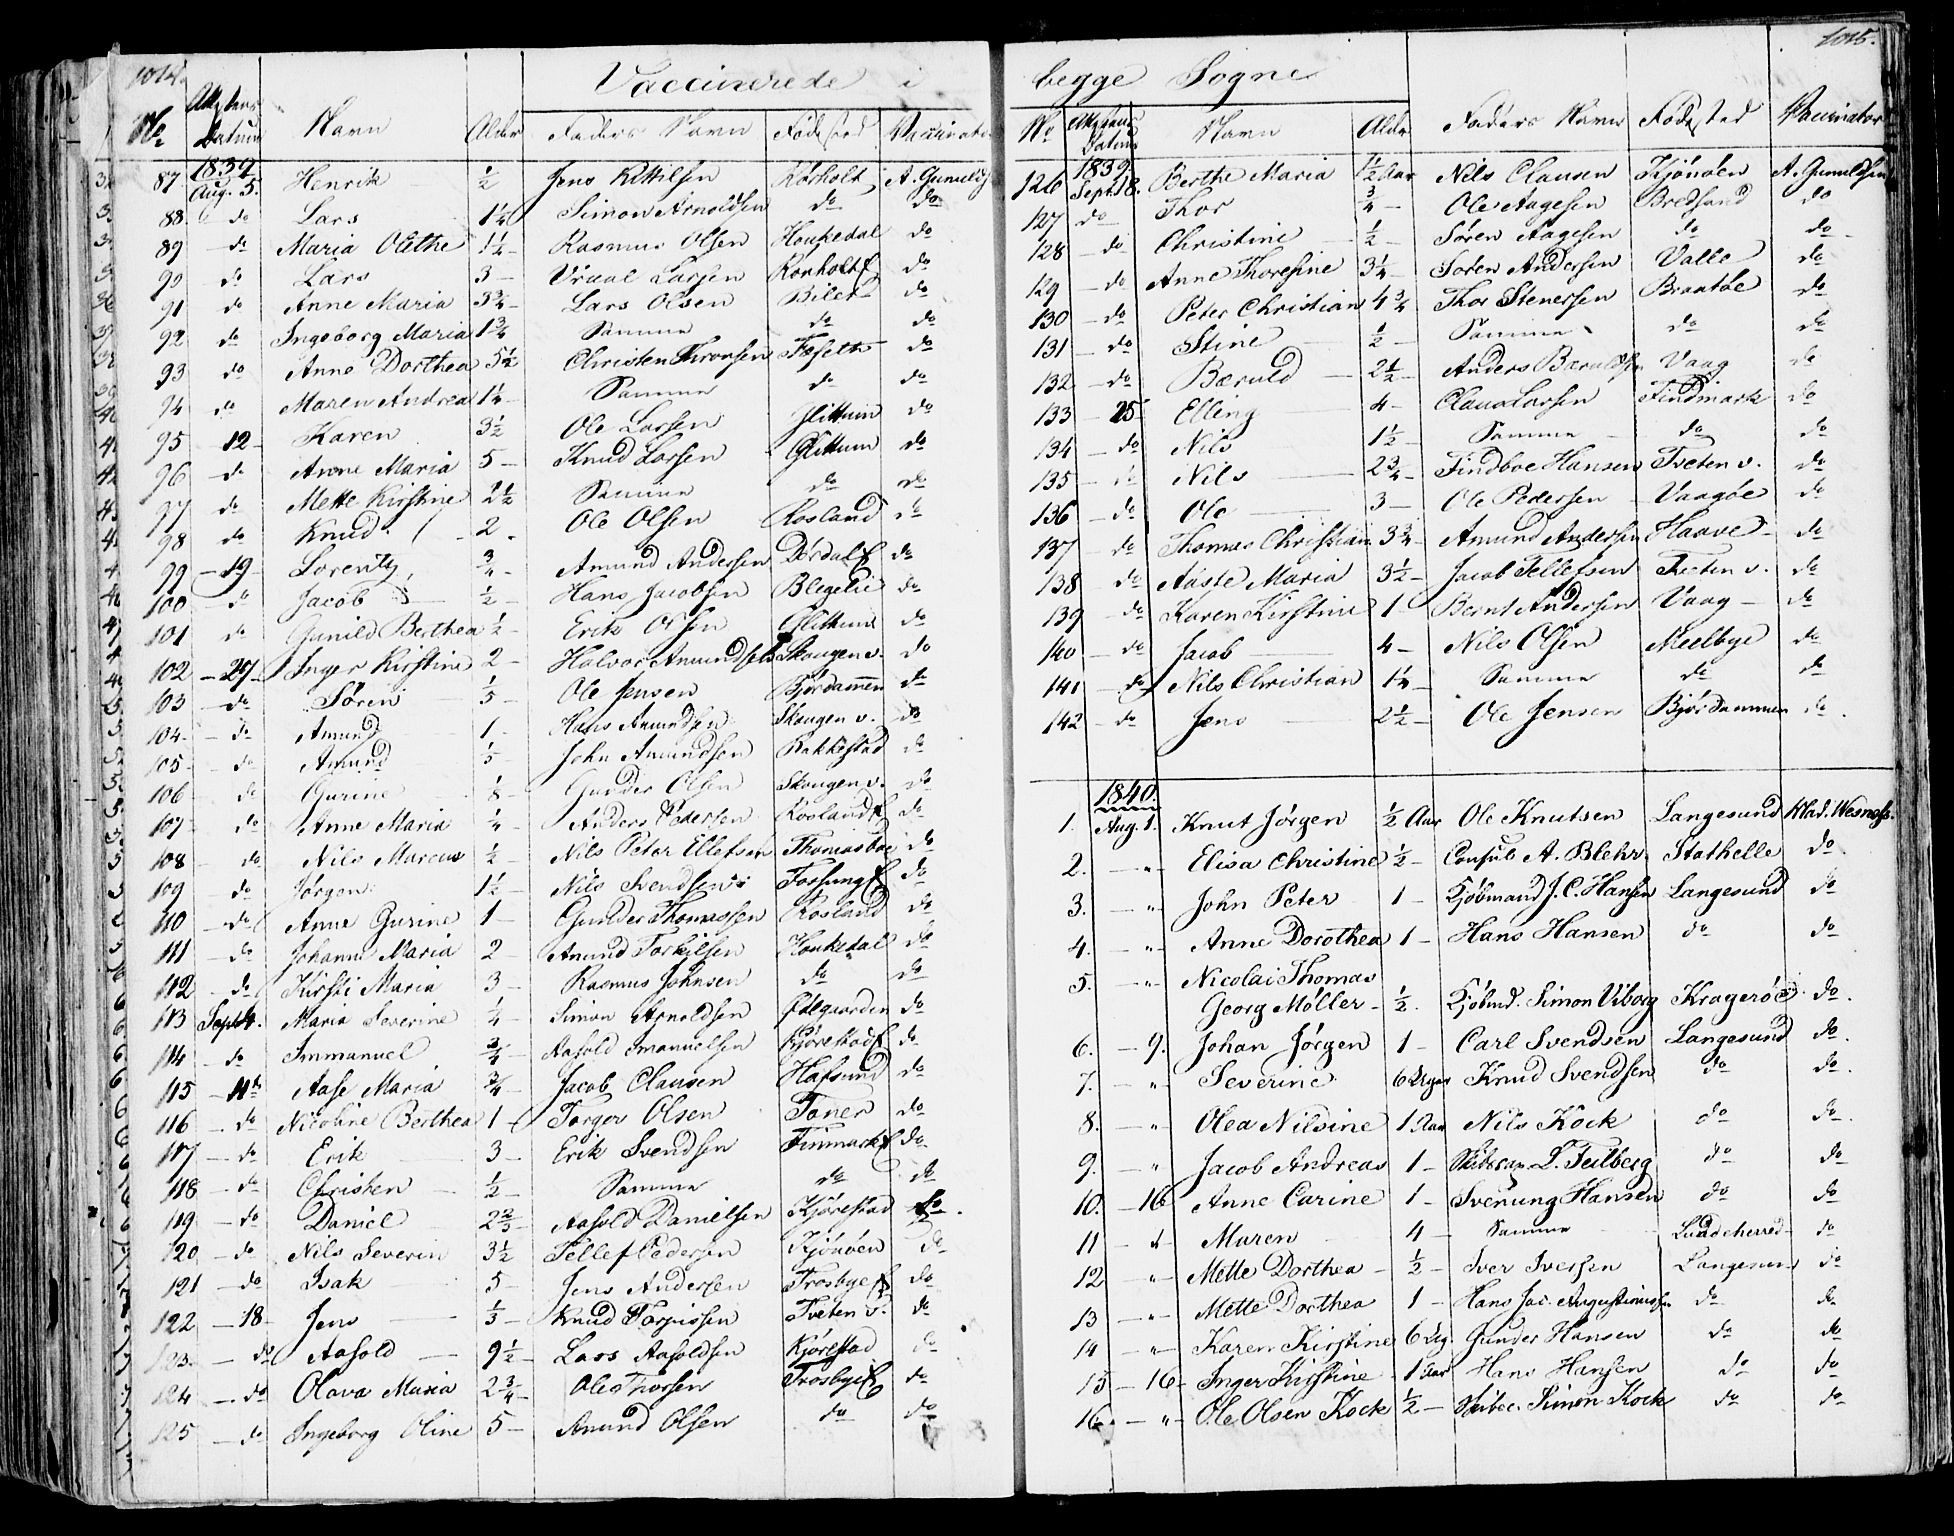 1014.
Vaccinerede i
No Attestens Datum Navn Alder Faders Navn Fødested Vaccinator
87 1839 Aug. 5. Henrik ½ Jens Kittilsen Rørholt A. Gunulds
88 do Lars 1¼ Simon Arnoldsen do do
89 do Maria Olethe 1¼ Rasmus Olsen Houkedal do
90 do Lars 3 Vraal Larsen Rørholt do
91 do Anne Maria 3¾ Lars Olsen do
92 do Ingeborg Maria 1¾ Samme do do
93 do Anne Dorthea 5½ Christen Thronsen Foseth do
94 do Maren Andrea 1¼ Samme do do
95 12 Karen 3½ Ole Larsen Glittum do
96 do Anne Maria 5 Knud Larsen Glittum do
97 do Mette Kirstine 2½ Samme do do
98 do Knud 2 Ole Olsen Rosland do
99 19 Lorentz ¾ Amund Andersen Dørdal do
100 do Jacob ½ Hans Jacobsen Blegelie do
101 do Gunild Berthea ½ Erik Olsen Glittum do
102 27 Inger Kirstine 2 Halvor Amundsen Skougen v. do
103 do Søren Ole Jensen Bjørdammen do
104 do Amund 1 Hans Amundsen Skougen v. do
105 do Amund John Amundsen Bakkestad do
106 do Gurine Gunder Olsen Skougen v. do
107 do Anne Maria ¼ Anders Pedersen Rosland do
108 do Nils Marcus ½ Nils Peter Ellefsen Thomasboe do
109 do Jørgen 1½ Nils Svendsen Fossung do
110 do Anne Gurine 1 Gunder Thomassen Rosland do
111 do Johanne Maria 2 Amund Torkilsen Houkedal do
112 do Kirsti Maria 3 Rasmus Johnsen do do
113 Sept 4. Maria Severine ¼ Simon Arnoldsen Ødegaarden do
114 do Immanuel ¾ Aasold Imanuelsen Kjørestad do
115 11te Aase Maria ¾ Jacob Clausen Hafsund do
116 do Nicoline Berthea 1 Torger Olsen Toner do
117 do Erik 3 Erik Svendsen Finmark do
118 do Christen ½ Samme do do
119 do Daniel 2⅔ Aasold Danielsen Kjørestad do
120 do Nils Severin 3½ Tellef Pedersen Kjønøen do
121 do Isak 5 Jens Andersen Trosbye do
122 18 Jens Knud Torgissen Tveten v. do
123 do Aasold 9½ Lars Aasoldsen Kjørestad do
124 do Olava Maria 2¾ Ole Thorsen Trosbye do
125 do Ingeborg Oline 5 Amund Olsen do do
1015.
begge Sogne
No Attestens Datum Navn Alder Faders Navn Fødested Vaccinator
126 1839 Sept. 18. Berthe Maria 1½ Aar Nils Clausen Kjønøen A. Gunuldsen
127 do Thor ¾ Ole Aagesen Bredsand do
128 do Christine ½ Søren Aagesen do do
129 do Anne Thoresine 3¼ Søren Andersen Valle do
130 do Peter Christian 4¾ Thor Stenersen Braatøe do
131 do Stine ½ Samme do do
132 do Bæruld 2½ Anders Bæruldsen Vaag do
133 25 Elling 4 Claus Larsen Findmark do
134 do Nils 1½ Samme do do
135 do Nils 2¾ Findboe Hansen Tveten v. do
136 do Ole 3 Ole Pedersen Vaagøe do
137 do Thomas Christian 3¾ Amund Andersen Haave do
138 do Aaste Maria 3½ Jacob Tellefsen Tveten v. do
139 do Karen Kirstine 1 Bernt Andersen Vaag do
140 do Jacob 4 Nils Olsen Meelbye do
141 do Nils Christian 1¼ Samme do do
142 do Jens 2½ Ole Jensen Bjørdammen do
1840
1. Aug. 1. Knut Jørgen ½ Aar Ole Knutsen Langesund
2. " Elisa Christine ½ Consul A. Blehr Stathelle do
3. " John Peter 1 Kjøbmand J. C. Hansen Langesund do
4. " Anne Dorothea 1 Hans Hansen do do
5. " Nicolai Thomas
Georg Møller ½ Kjøbmd. Simon Viborg Kragerøe do
6. 9. Johan Jørgen 1 Carl Svendsen Langesund do
7. " Severine 6 Uger Knud Svendsen do do
8. " Olea Nilsine 1 Aar Nils Kock do do
9. " Jacob Andreas 1 Skibscap. L. Feilberg do do
10. 16 Anne Carine 1 Svenung Hansen do do
11 " Maren 4 Samme do
12 " Mette Dorthea ½ Iver Iversen Langesund do
13 " Mette Dorthea 1 Hans Jac. Augustinussen do do
14 " Karen Kirstine 6 Ug. Gunder Hansen do do
15 16 Inger Kirstine 1 Aar Hans Hansen do do
16 " Ole Olsen Kock ½ Skibsc. Simon Kock do do